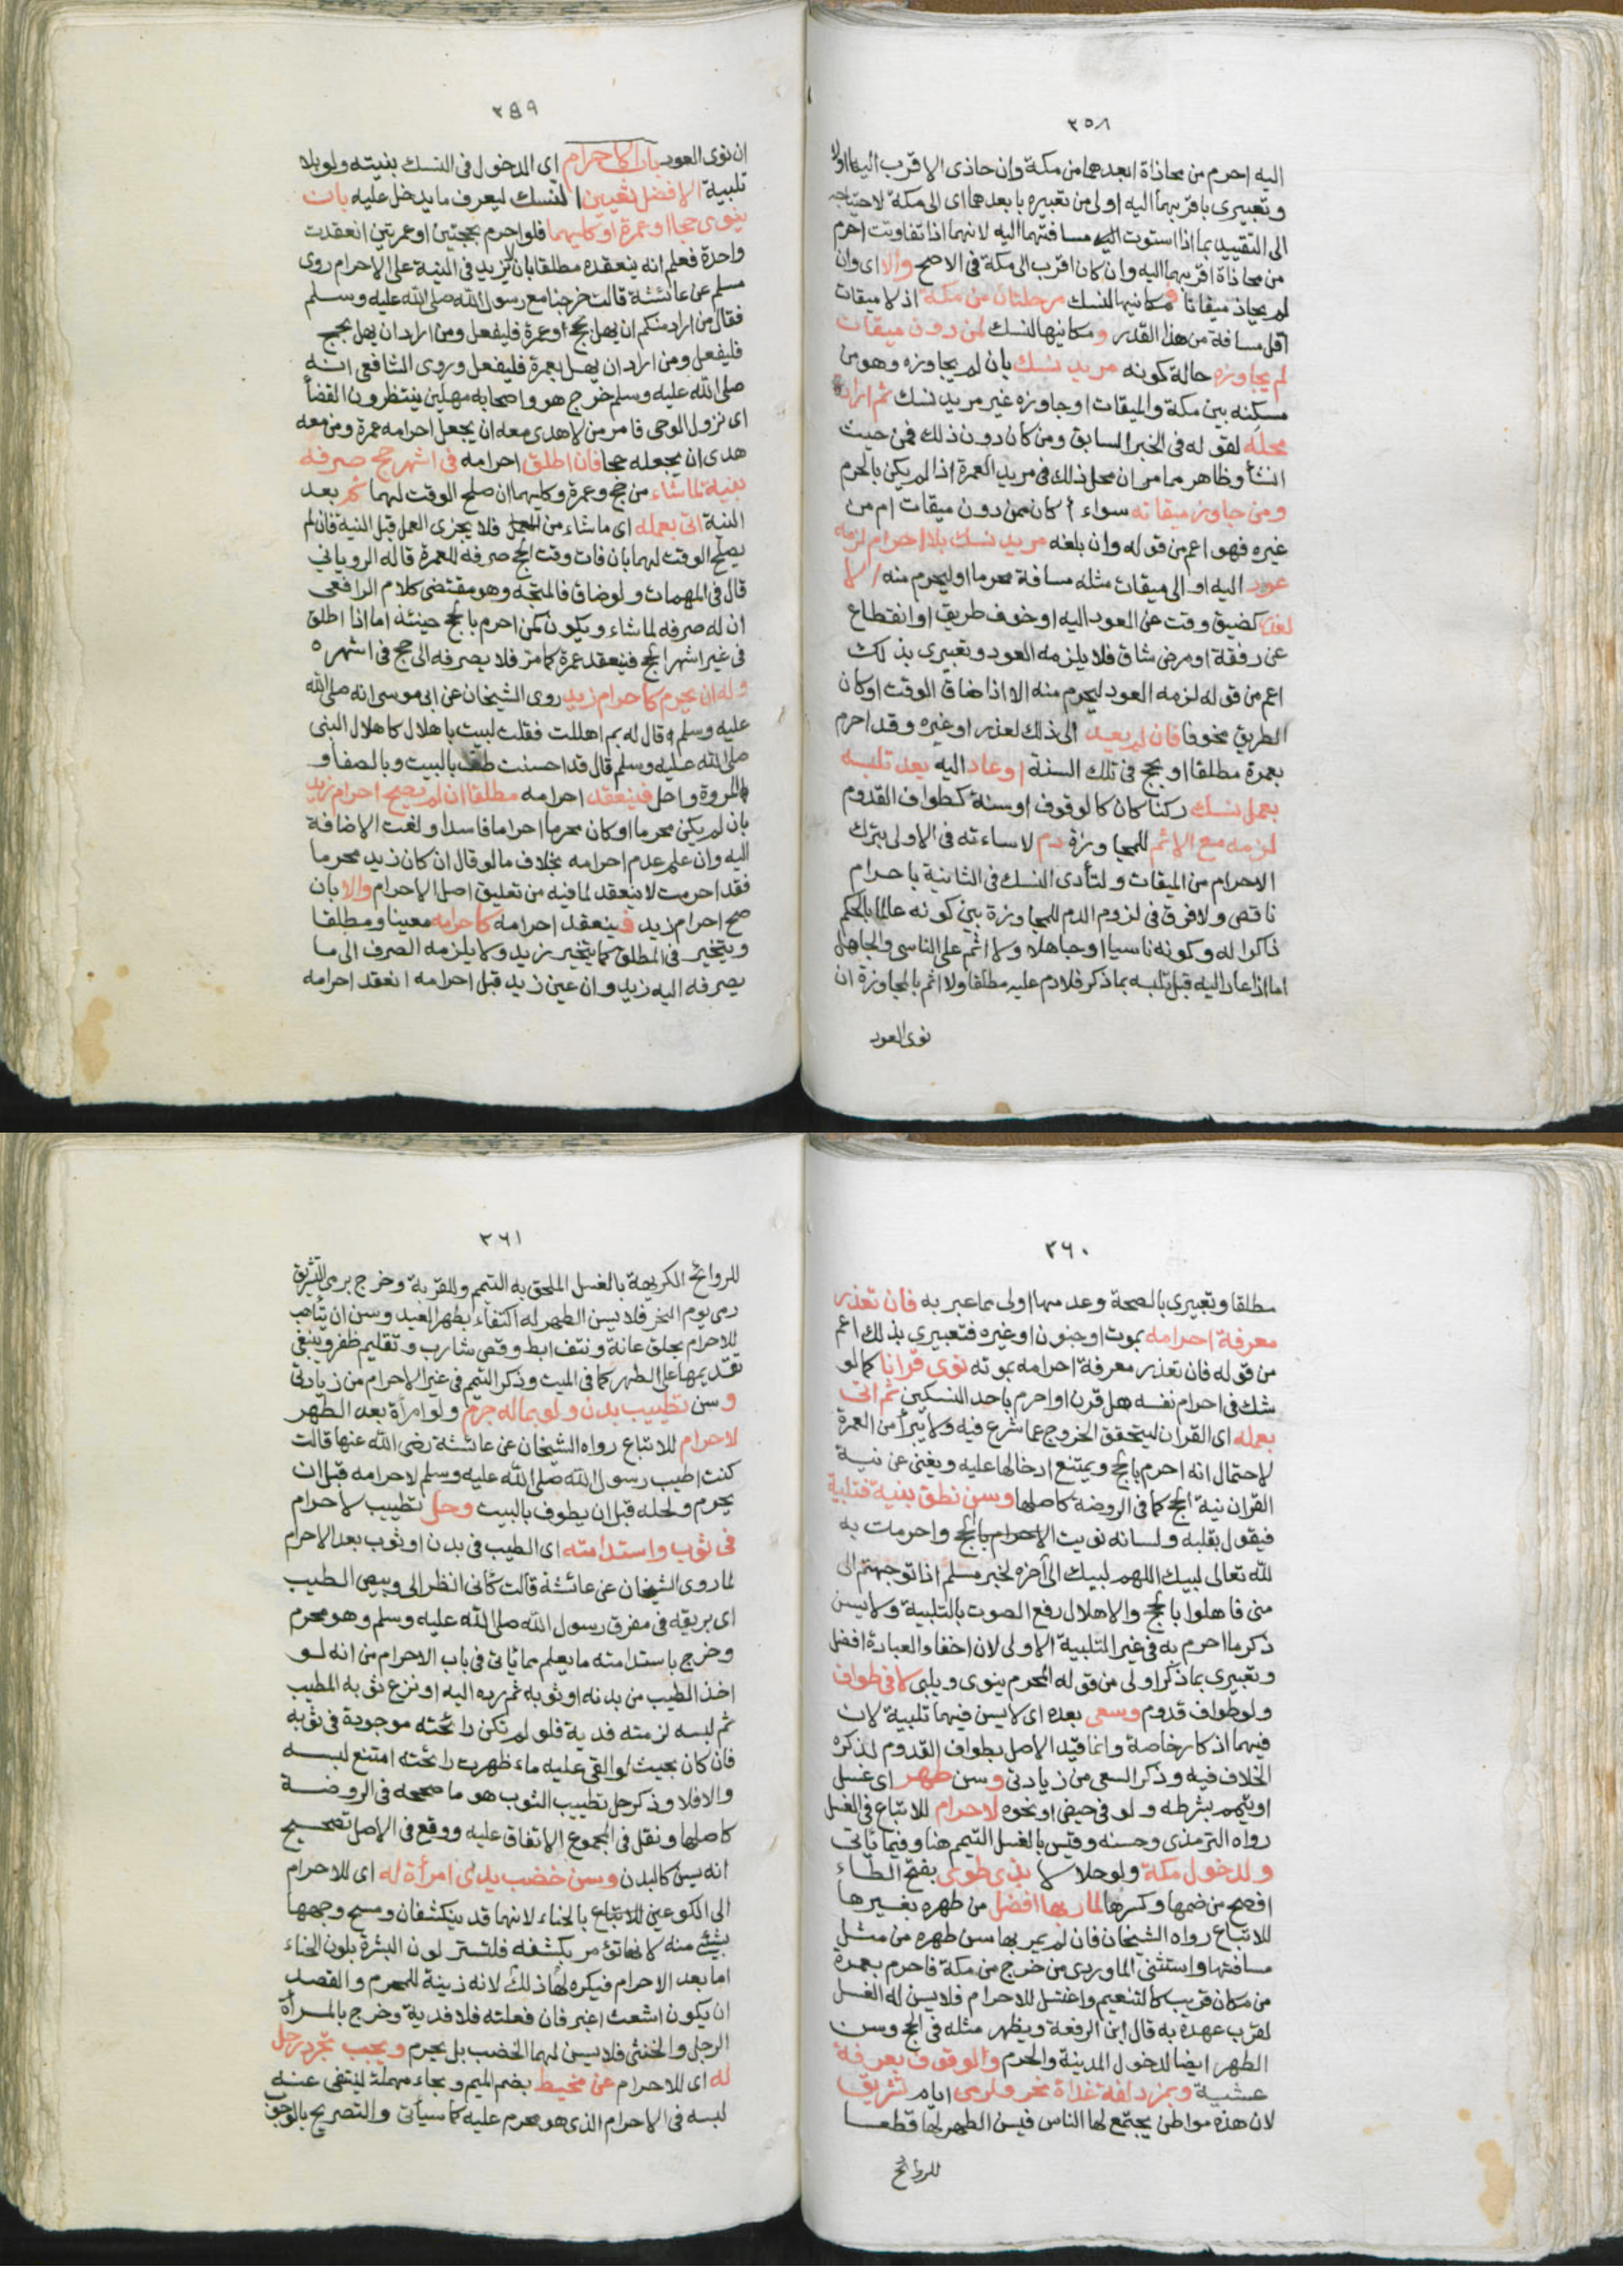 ٣٥٨
اليه احرم من محاذاة ابعدهما من مكة وان حاذى الاقرب اليها اولا
وتعبيرى باقربهما اليه اولى من تعبيره بابعدهما اى الى مكة لاحتياجه
الى التقييد بما اذا استوت مسافتهما اليه لانهما اذا تفاوتت احرم
من محاذاة اقربهما اليه وان كان اقرب الى مكة فى الاصح والا اى وان
لم يحاذ ميقاتا فمكانيها لنسك مرحلتان من مكة اذ لا ميقات
اقل مسافة من هذا القدر ومكانيها لنسك لمن دون ميقات
لم يجاوزه حالة كونه مريد نسك بان لم يجاوزه وهو من
مسكنه بين مكة والميقات او جاوزه غير مريد نسك ثم اراده
محله لقوله فى الخبر السابق ومن كان دون ذلك فمن حيث
انشأ وظاهر مما مر ان محل ذلك فى مريد العمرة اذا لم يكن بالحرم
ومن جاوز ميقاته سواء أكان ممن دون ميقات ام من
غيره فهو اعم من قوله وان بلغه مريد نسك بلا احرام لزمه
عود اليه او الى ميقات مثله مسافة محرما او ليحرم منه الا
لعذر كضيق وقت عن العود اليه او خوف طريق او انقطاع
عن رفقة او مرض شاق فلا يلزمه العود وتعبيرى بذلك
اعم من قوله لزمه العود ليحرم منه الا اذا ضاق الوقت او كان
الطريق مخوفا فان لم يعد الى ذلك لعذر او غيره وقد احرم
بعمرة مطلقا او بحج فى تلك السنة او عاد اليه بعد تلبسه
بعمل نسك ركنا كان كالوقوف او سنة كطواف القدوم
لزمه مع الاثم للمجاوزة دم لاساءته فى الاولى بترك
الاحرام من الميقات ولتأدى النسك فى الثانية باحرام
ناقص ولا فرق فى لزوم الدم للمجاوزة بين كونه عالما بالحكم
ذاكرا له وكونه ناسيا او جاهلا ولا اثم على الناسى والجاهل
اما اذا عاد اليه قبل تلبسه بما ذكر فلا دم عليه مطلقا ولا اثم بالمجاوزة ان
نوى العود
٣٥٩
ان نوى العود باب الاحرام اى الدخول فى النسك بنيته ولو بلا
تلبية الافضل تعيين النسك ليعرف ما يدخل عليه بان
ينوى حجا او عمرة او كليهما فلو احرم بحجتين او عمرتين انعقدت
واحدة فعلم انه ينعقد مطلقا بان لا يزيد فى النية على الاحرام روى
مسلم عن عائشة قالت خرجنا مع رسول الله صلى الله عليه وسلم
فقال من اراد منكم ان يهل بحج او عمرة فليفعل ومن اراد ان يهل بحج
فليفعل ومن اراد ان يهل بعمرة فليفعل وروى الشافعى انه
صلى الله عليه وسلم خرج هو واصحابه مهلين ينتظرون القضأ
اى نزول الوحى فامر من لا هدى معه ان يجعل احرامه عمرة ومن معه
هدى ان يجعله حجا فان اطلق احرامه فى اشهر حج صرفه
بنية لما شاء من حج وعمرة وكليهما ان صلح الوقت لهما ثم بعد
النية اتى بعمله اى ما شاء من فلا يجزى العمل قبل النية فان لم
يصلح الوقت لهما بان فات وقت الحج صرفه للعمرة قاله الرويانى
قال فى المهمات ولو ضاق فالمتجه وهو مقتضى كلام الرافعى
ان له صرفه لما شاء ويكون كمن احرم بالحج حينئذ اما اذا اطلق
فى غير اشهر الحج فينعقد عمرة كما مر فلا يصرفه الى حج فى اشهره
وله ان يحرم كاحرام زيد روى الشيخان عن ابى موسى انه صلى الله
عليه وسلم قال له بم اهللت فقلت لبيت باهلال كاهلال النبى
صلى الله عليه وسلم قال قد احسنت طف بالبيت وبالصفا و
المروة واحل فينعقد احرامه مطلقا ان لم يصح احرام زيد
بان لم يكن محرما او كان محرما احراما فاسدا ولغت الاضافة
اليه وان علم عدم احرامه بخلاف ما لو قال ان كان زيد محرما
فقد احرمت لا ينعقد لما فيه من تعليق اصل الاحرام والا بان
صح احرام زيد فينعقد احرامه كاحرامه معينا ومطلقا
ويتخير فى المطلق كما يتخير زيد ولا يلزمه الصرف الى ما
يصرفه اليه زيد وان عين زيد قبل احرامه انعقد احرامه
٣٦٠
مطلقا وتعبيرى بالصحة وعدمها اولى مما عبر به فان تعذر
معرفة احرامه بموت او جنون او غيره فتعبيرى بذلك اعم
من قوله فان تعذر معرفة احرامه بموته نوى قرانا كما لو
شك فى احرام نفسه هل قرن او احرم باحد النسكين ثم اتى
بعمله اى القران ليتحقق الخروج عما شرع فيه ولا يبرأ من العمرة
لاحتمال انه احرم بالحج ويمتنع ادخالها عليه ويغنى عن نية
القران نية الحج كما فى الروضة كاصلها وسن نطق بنية فتلبية
فيقول بقلبه ولسانه نويت الاحرام بالحج واحرمت به
لله تعالى لبيك اللهم لبيك الى آخره لخبر مسلم اذا توجهتم الى
منى فاهلوا بالحج والاهلال رفع الصوت بالتلبية ولا يسن
ذكر ما احرم به فى غير التلبية الاولى لان اخفاء العبادة افضل
وتعبيرى بما ذكر اولى من قوله المحرم ينوى ويلبى لا فى طواف
ولو طواف قدوم وسعى بعده اى لا يسن فيهما تلبية لان
فيهما اذكار خاصة وانما قيد الاصل بطواف القدوم لذكره
الخلاف فيه وذكر السعى من زيادتى وسن طهر اى غسل
او تيمم بشرطه ولو فى حيض او نحوه لاحرام للاتباع فى الغسل
رواه الترمذى وحسنه وقيس بالغسل التيمم هنا وفيما يأتى
ولدخول مكة ولو حلالا بذى طوى بفتح الطاء
افصح من ضمها وكسرها لمار بها افضل من طهره بغيرها
للاتباع رواه الشيخان فان لم يمر بها سن طهره من مثل
مسافتها واستثنى الماوردى من خرج من مكة فاحرم بعمرة
من مكان قريب كالتنعيم واغتسل للاحرام فلا يسن له الغسل
لقرب عهده به قال ابن الرفعة ويظهر مثله فى الحج وسن
الطهر ايضا لدخول المدينة والحرم والوقوف بعرفة
عشية وبمزدلفة غداة نحر ولرمى ايام تشريق
لان هذه مواطن يجتمع لها الناس فيسن الطهر لها قطعا
للروائح
٣٦١
للروائح الكريهة بالغسل الملحق به التيمم وللقربة وخرج برمى التشريق
رمى يوم النحر فلا يسن الطهر له اكتفاء بطهر العيد وسن ان يتأهب
للاحرام بحلق عانة ونتف ابط وقص شارب وتقليم ظفر وينبغى
تقديمها على الطهر كما فى الميت وذكر التيمم فى غير الاحرام من زيادتى
وسن تطييب بدن ولو بماله جرم ولو امرأة بعد الطهر
لاحرام للاتباع رواه الشيخان عن عائشة رضى الله عنها قالت
كنت اطيب رسول الله صلى الله عليه وسلم لاحرامه قبل ان
يحرم ولحله قبل ان يطوف بالبيت وحل تطييب لاحرام
فى ثوب واستدامته اى الطيب فى بدن او ثوب بعد الاحرام
لما روى الشيخان عن عائشة قالت كأنى انظر الى وبيص الطيب
اى بريقه فى مفرق رسول الله صلى الله عليه وسلم وهو محرم
وخرج باستدامته ما يعلم مما يأتى فى باب الاحرام من انه لو
اخذ الطيب من بدنه او ثوبه ثم رده اليه او نزع ثوبه المطيب
ثم لبسه لزمته فدية فلو لم تكن رائحته موجودة فى ثوبه
فان كان بحيث لو القى عليه ماء ظهرت رائحته امتنع لبسه
والا فلا وذكر حل تطييب الثوب هو ما صححه فى الروضة
كاصلها ونقل فى المجموع الاتفاق عليه ووقع فى الاصل تصحيح
انه يسن كالبدن وسن خضب يدى امرأة له اى للاحرام
الى الكوعين للاتباع بالحناء لانهما قد ينكشفان ومسح وجهها
بشئ منه لانها تؤمر بكشفه فلتستر لون البشرة بلون الحناء
اما بعد الاحرام فيكره لها ذلك لانه زينة للمحرم والقصد
ان يكون اشعث اغبر فان فعلته فلا فدية وخرج بالمرأة
الرجل والخنثى فلا يسن لهما الخضب بل يحرم ويجب تجرد رجل
له اى للاحرام عن محيط بضم الميم وبحاء مهملة لينتفى عنه
لبسه فى الاحرام الذى هو محرم عليه كما سيأتى والتصريح بالوجوب